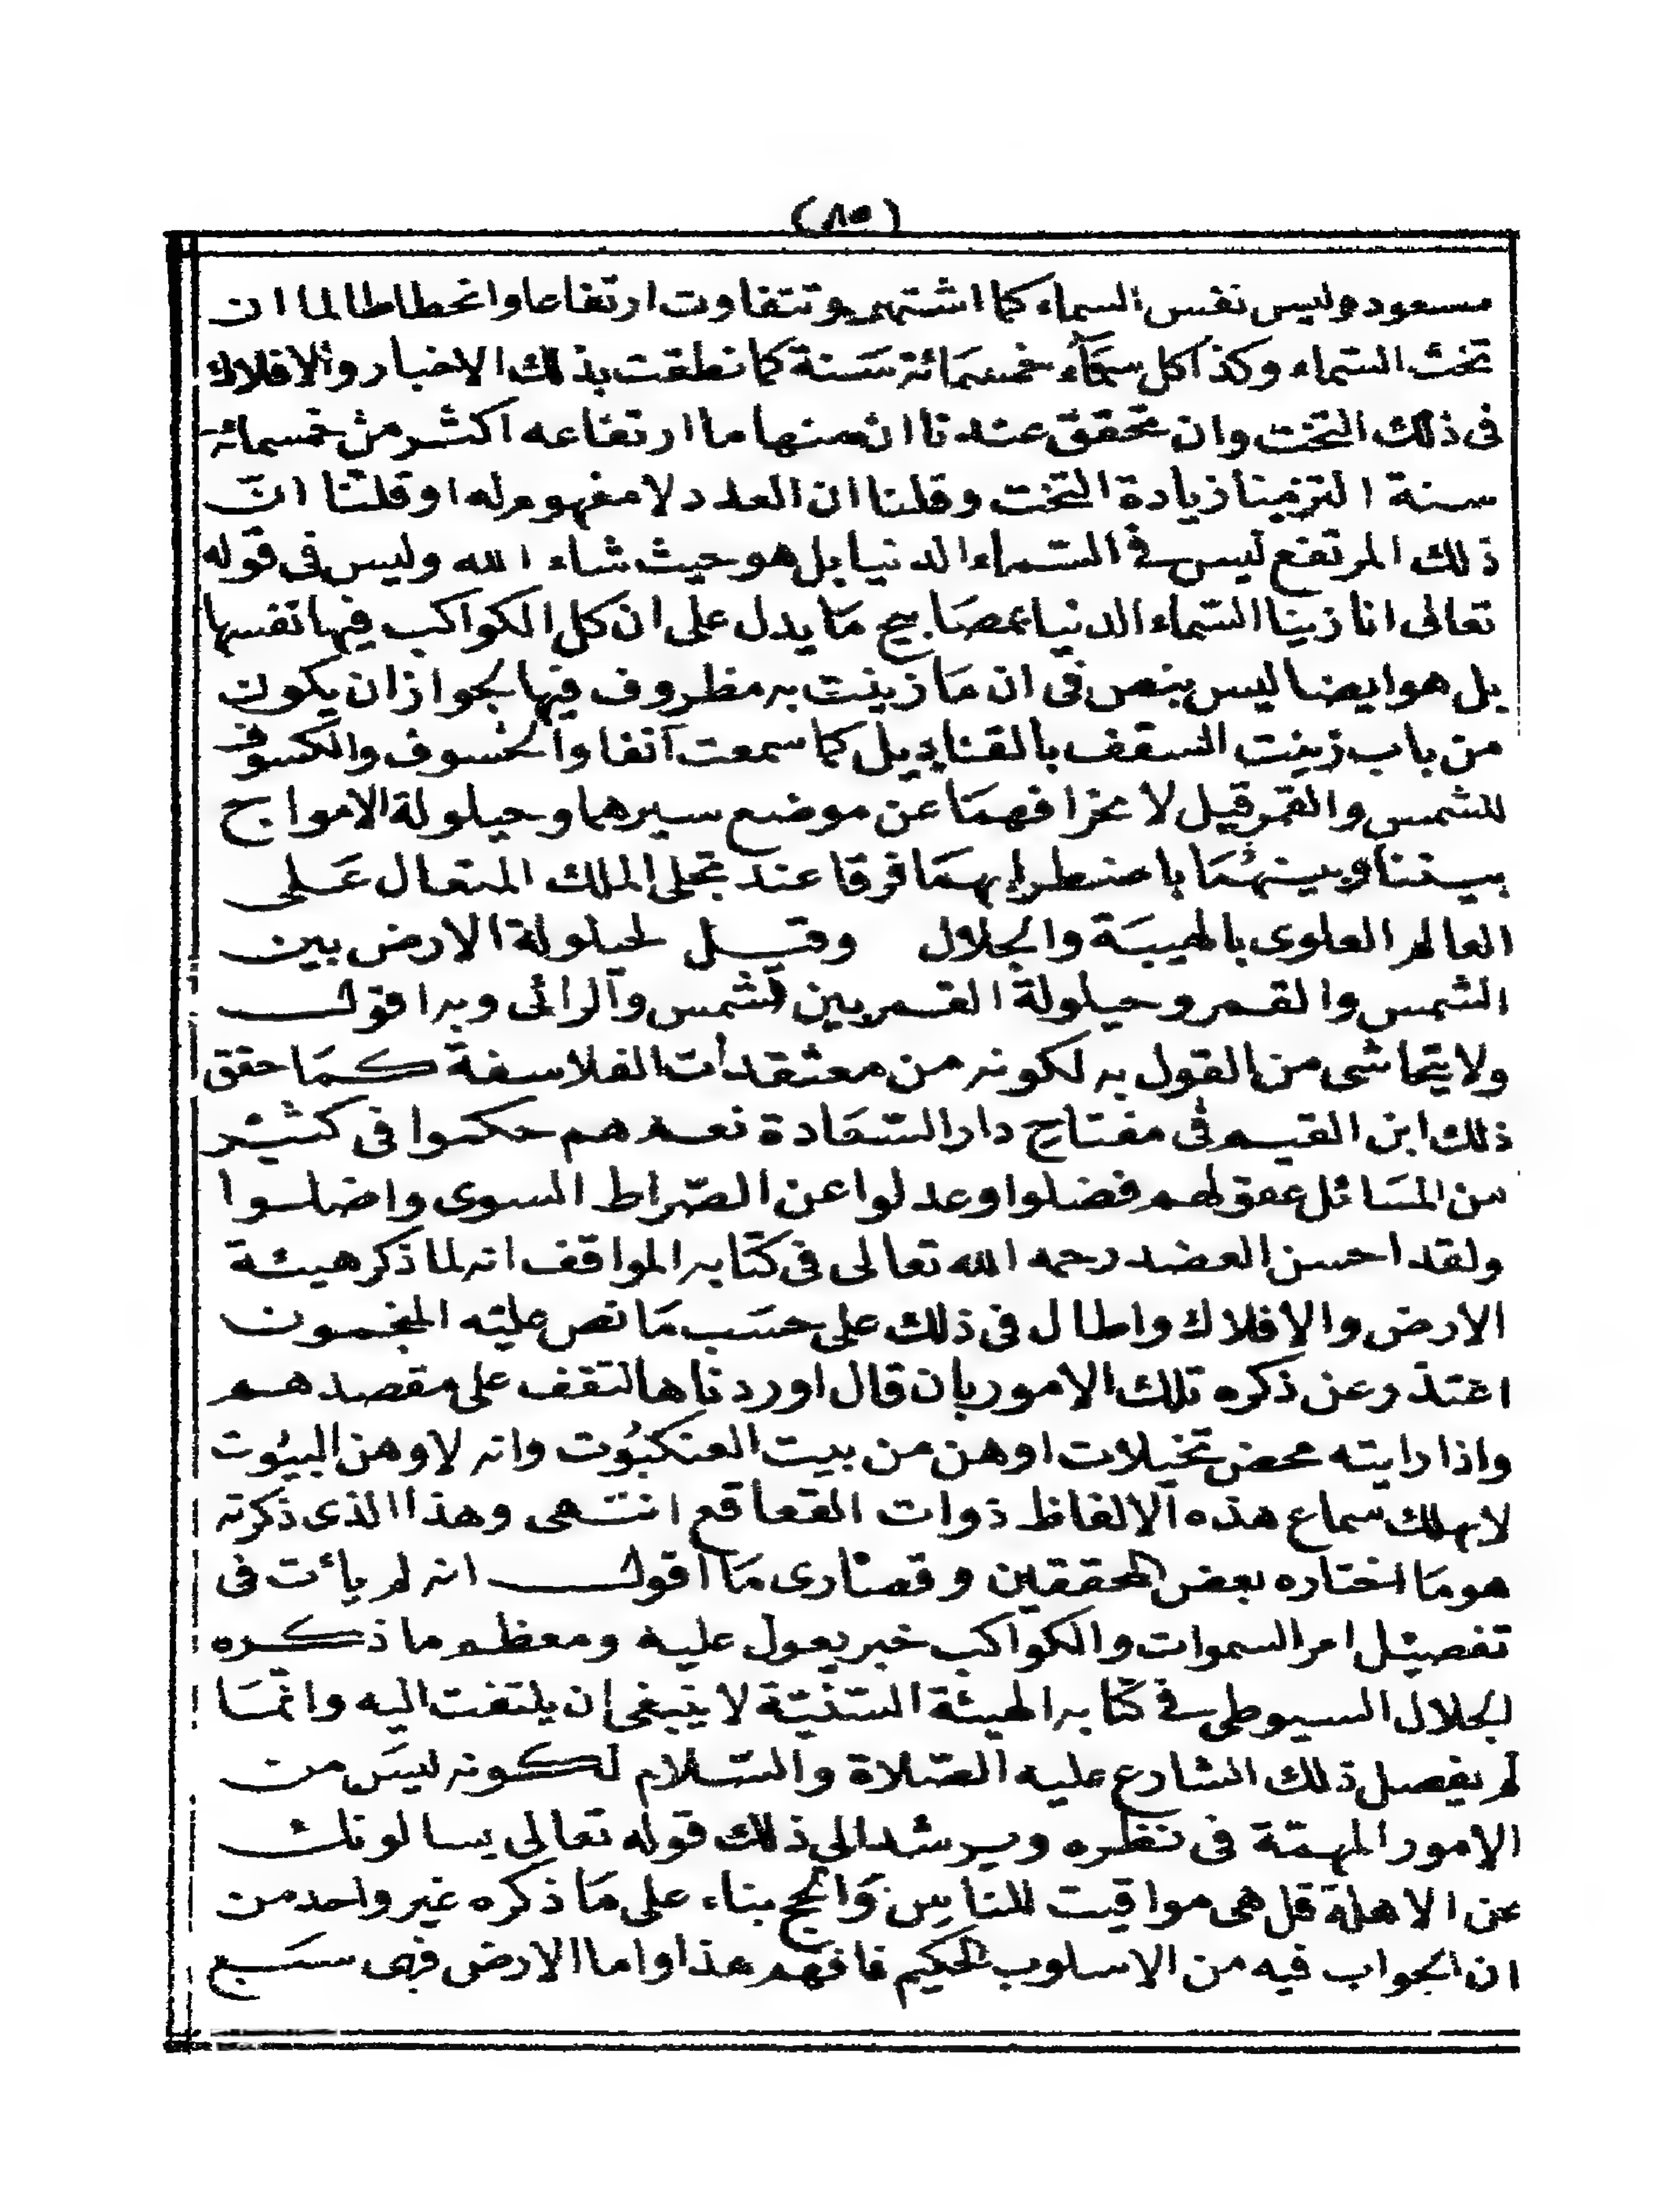 (٨٥)
مسعود وليس نفس السماء كما اشتهر وتتفاوت ارتفاعا وانحطاطا لما ان
تخت السماء وكذا كل سماء خمسمائة سنة كما نطقت بذلك الاخبار والافلاك
فى ذلك التخت وان تحقق عندنا ان منها ما ارتفاعه اكثر من خمسمائة
سنة التزمنا زيادة التخت وقلنا ان العدد لا مفهوم له او قلنا انّ
ذلك المرتفع ليس فى السماء الدنيا بل هو حيث شاء الله وليس فى قوله
تعالى انا زينا السماء الدنيا بمصابيح ما يدل على ان كل الكواكب فيها نفسها
بل هو ايضا ليس بنص فى ان ما زينت به مظروف فيها لجواز ان يكون
من باب زينت السقف بالقناديل كما سمعت آنفا والخسوف والكسوف
للشمس والقمر قيل لانحرافهما عن موضع سيرهما وحيلولة الامواج
بيننا وبينهما باضطرابهما فرقا عند تجلى الملك المتعال على
العالم العلوى بالهيبة والجلال وقيل لحيلولة الارض بين
الشمس والقمر وحيلولة القمر بين الشمس والرائى وبه اقول
ولا يتحاشى من القول به لكونه من معتقدات الفلاسفة كما حقق
ذلك ابن القيم فى مفتاح دار السعادة نعم هم حكموا فى كثير
من المسائل عقولهم فضلوا وعدلوا عن الصراط السوى واضلوا
ولقد احسن العضد رحمه الله تعالى فى كتابه المواقف انه لما ذكر هيئة
الارض والافلاك واطال فى ذلك على حسب ما نص عليه المنجمون
اعتذر عن ذكره تلك الامور بان قال اوردناها لتقف على مقصدهم
واذا رايته محض تخيلات اوهن من بيت العنكبوت وانه لاوهن البيوت
لا يهلك سماع هذه الالفاظ ذوات القعاقع انتهى وهذا الذى ذكرته
هو ما اختاره بعض المحققين وقصارى ما اقول انه لم يأت فى
تفصيل امر السموات والكواكب خبر يعول عليه ومعظم ما ذكره
الجلال السيوطى فى كتابه الهيئة السنيّة لا ينبغى ان يلتفت اليه وانما
لم يفصل ذلك الشارع عليه الصّلاة والسّلام لكونه ليس من
الامور المهمّة فى نظره ويرشد الى ذلك قوله تعالى يسالونك
عن الاهلة قل هى مواقيت للناس والحج بناء على ما ذكره غير واحد من
ان الجواب فيه من الاسلوب الحكيم فافهم هذا واما الارض فهى سبع